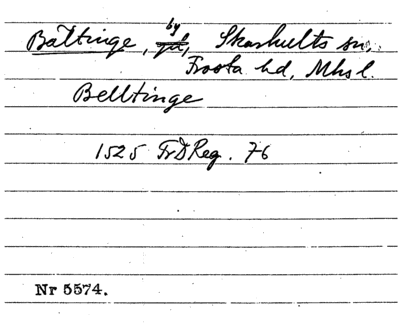 Bältinge, by, Skarhults sn,
Frosta hd, Mhs l.
Belltinge
1525 FrDReg. 76
Nr 5574.